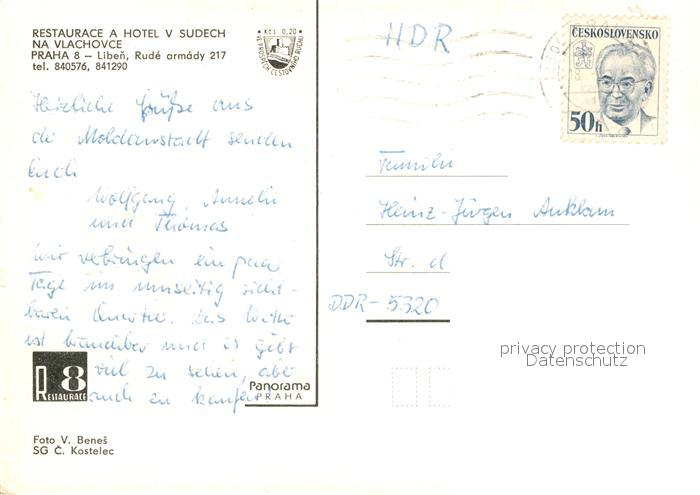 RESTAURACE A HOTEL V SUDECH
NA VLACHOVCE
PRAHA 8 – Libeň, Rudé armády 217
tel. 840576, 841290
Kčs 0,20
VE PROSPĚCH CESTOVNÍHO RUCHU
HDR
ČESKOSLOVENSKO
50h
Herzliche Grüße aus
der Moldaustadt senden
Euch
Wolfgang, Annelie
und Thomas
Wir verbringen ein paar
Tage im umseitig sicht-
baren Quartier. Das Wetter
ist brauchbar und es gibt
viel zu sehen, aber
auch zu kaufen
Familie
Heinz-Jürgen Anklam
Str. d
DDR-5320
R 8
RESTAURACE
Panorama
PRAHA
privacy protection
Datenschutz
Foto V. Beneš
SG Č. Kostelec